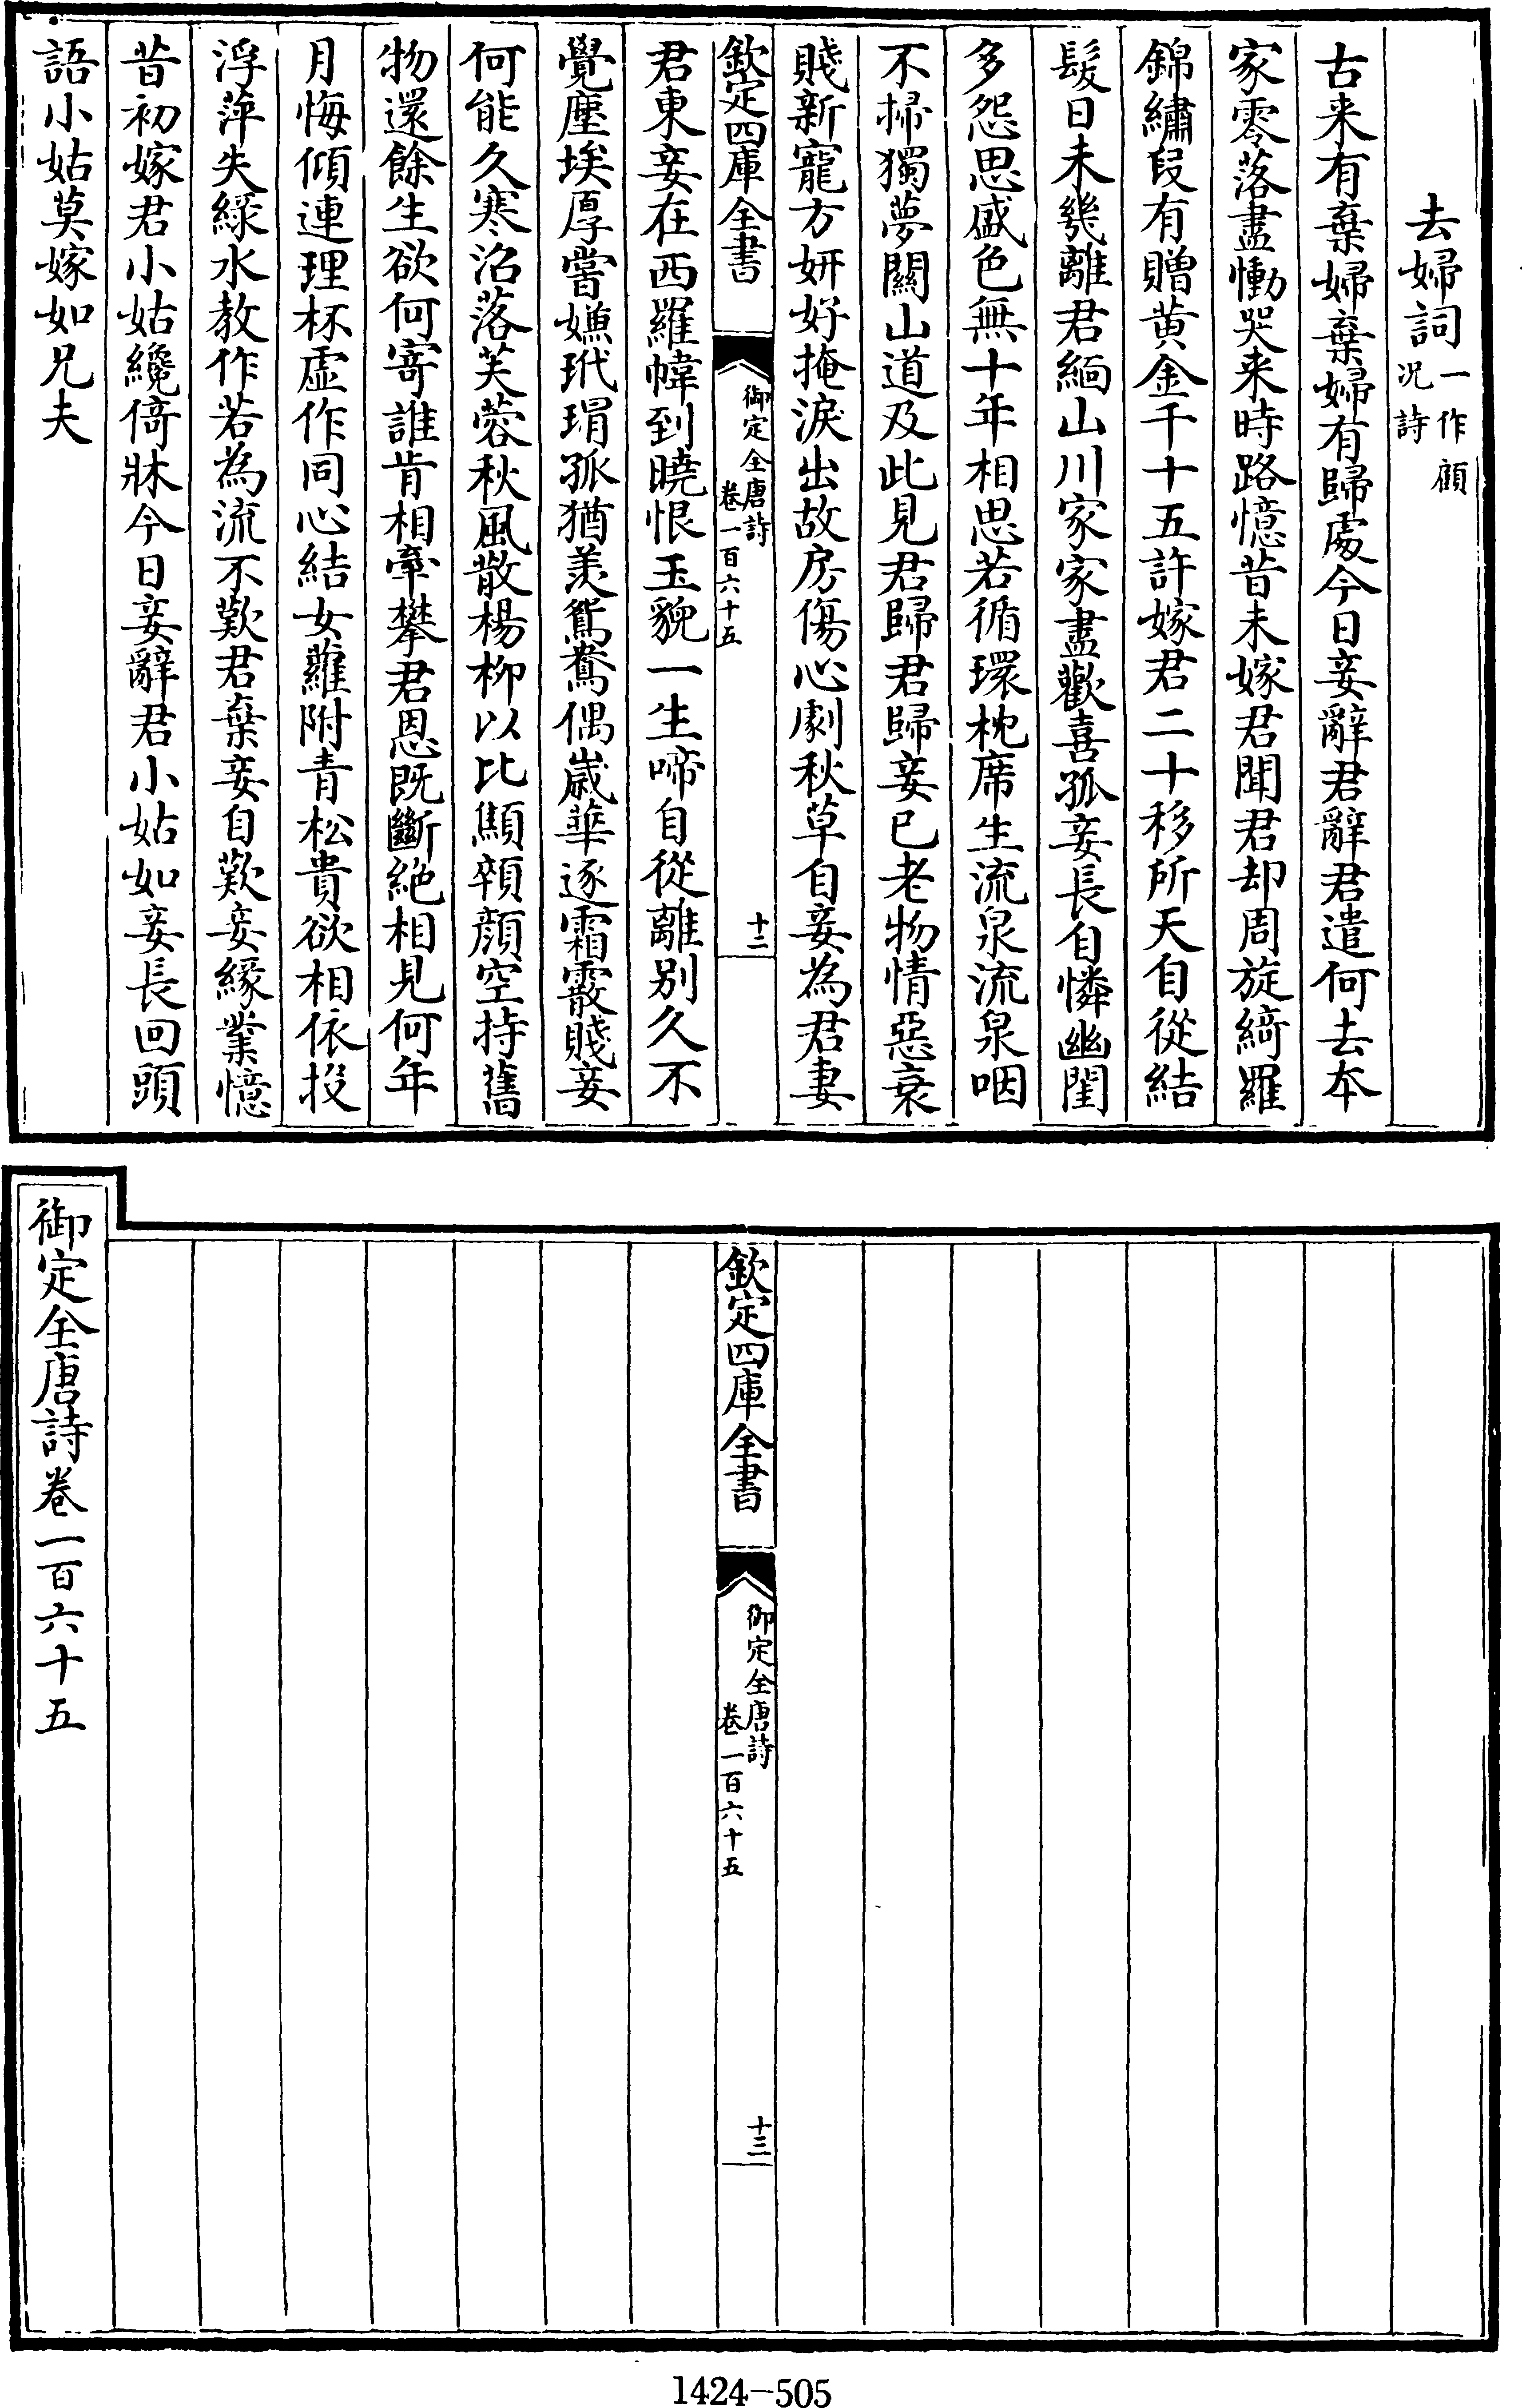 去婦詞一作顧况詩
古来有棄婦棄婦有歸處今日妾辭君辭君遣何去本
家零落盡慟哭来時路憶昔未嫁君聞君却周旋綺羅
錦繡段有贈黄金千十五許嫁君二十移所天自從結
髮日未幾離君緬山川家家盡歡喜孤妾長自憐幽閨
多怨思盛色無十年相思若循環枕席生流泉流泉咽
不掃獨夢關山道及此見君歸君歸妾已老物情惡衰
賤新寵方妍好掩淚出故房傷心劇秋草自妾為君妻
欽定四庫全書
御定全唐詩
卷一百六十五
十二
君東妾在西羅幃到曉恨玉貌一生啼自從離别久不
覺塵埃厚嘗嫌玳瑁孤猶羡鴛鴦偶嵗華逐霜霰賤妾
何能久寒沼落芙蓉秋風散楊柳以比顦顇顔空持舊
物還餘生欲何寄誰肯相牽攀君恩既斷絶相見何年
月悔傾連理杯虚作同心結女蘿附青松貴欲相依投
浮萍失緑水教作若為流不歎君棄妾自歎妾緣業憶
昔初嫁君小姑纔倚牀今日妾辭君小姑如妾長回頭
語小姑莫嫁如兄夫
欽定四庫全書
御定全唐詩
卷一百六十五
十三
御定全唐詩卷一百六十五
1424-505